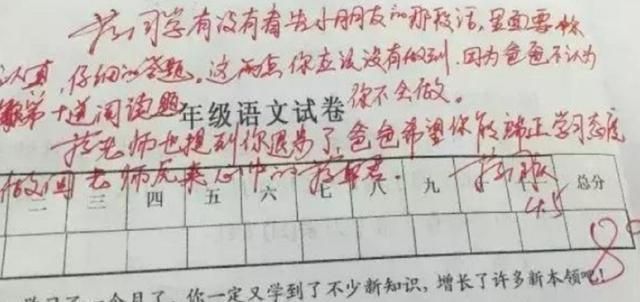 同学有没有看告小朋友的那段话,里面要你
认真,仔细的答题。这两点你应该没有做到,因为爸爸不认为
第十道阅读题 你不会做。
年级语文试卷
老师也提到你退步了,爸爸希望你能端正学习态度
做回老师原来心中的
二 三 四 五 六 七 八 九 总分
4.5
8
学习了一个月了,你一定又学到了不少新知识,增长了许多新本领吧!